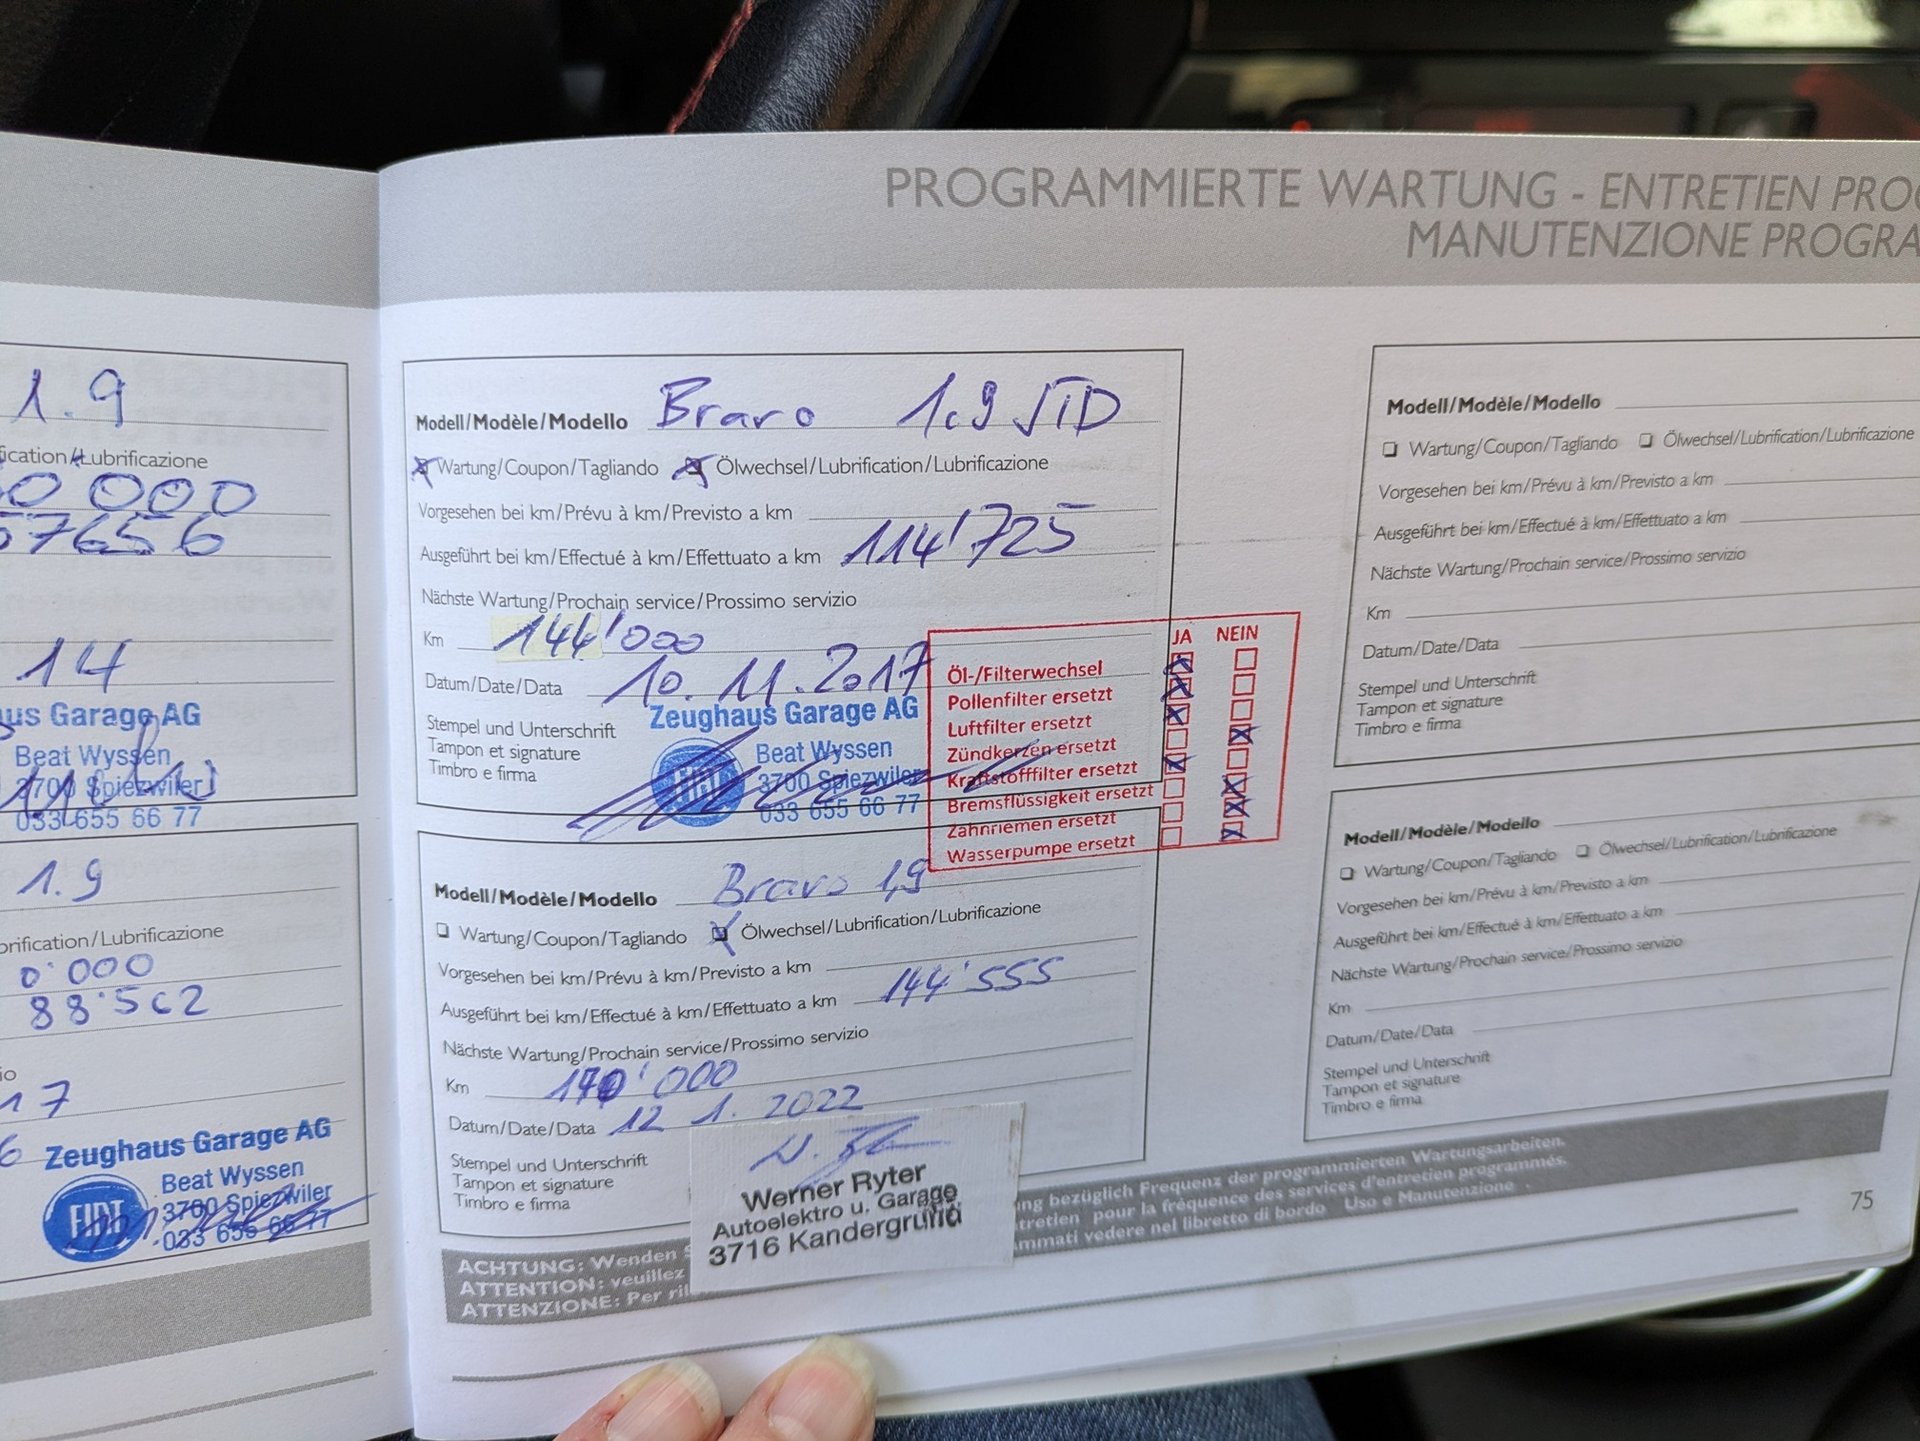 PROGRAMMIERTE WARTUNG - ENTRETIEN PROG
MANUTENZIONE PROGRA
1.9
ication/Lubrificazione
0 000
57656
14
us Garage AG
Beat Wyssen
3700 Spiezwiler
033 655 66 77
1.9
brification/Lubrificazione
0'000
io
17
6
Zeughaus Garage AG
FIAT
Beat Wyssen
3700 Spiezwiler
033 655 66 77
Modell/Modèle/Modello Bravo 1.9 JTD
Wartung/Coupon/Tagliando Ölwechsel/Lubrification/Lubrificazione
Vorgesehen bei km/Prévu à km/Previsto a km
Ausgeführt bei km/Effectué à km/Effettuato a km 114'725
Nächste Wartung/Prochain service/Prossimo servizio
Km 144'000
Datum/Date/Data 10.11.2017
Stempel und Unterschrift
Tampon et signature
Timbro e firma
Zeughaus Garage AG
FIAT
Beat Wyssen
3700 Spiezwiler
033 655 66 77
JA NEIN
Öl-/Filterwechsel
Pollenfilter ersetzt
Luftfilter ersetzt
Zündkerzen ersetzt
Kraftstofffilter ersetzt
Bremsflüssigkeit ersetzt
Zahnriemen ersetzt
Wasserpumpe ersetzt
Modell/Modèle/Modello Bravo 1,9
Wartung/Coupon/Tagliando Ölwechsel/Lubrification/Lubrificazione
Vorgesehen bei km/Prévu à km/Previsto a km
Ausgeführt bei km/Effectué à km/Effettuato a km 144'555
Nächste Wartung/Prochain service/Prossimo servizio
Km 170'000
Datum/Date/Data 12 1. 2022
Stempel und Unterschrift
Tampon et signature
Timbro e firma
Werner Ryter
Autoelektro u. Garage
3716 Kandergrund
Modell/Modèle/Modello
Wartung/Coupon/Tagliando Ölwechsel/Lubrification/Lubrificazione
Vorgesehen bei km/Prévu à km/Previsto a km
Ausgeführt bei km/Effectué à km/Effettuato a km
Nächste Wartung/Prochain service/Prossimo servizio
Km
Datum/Date/Data
Stempel und Unterschrift
Tampon et signature
Timbro e firma
Modell/Modèle/Modello
Wartung/Coupon/Tagliando Ölwechsel/Lubrification/Lubrificazione
Vorgesehen bei km/Prévu à km/Previsto a km
Ausgeführt bei km/Effectué à km/Effettuato a km
Nächste Wartung/Prochain service/Prossimo servizio
Km
Datum/Date/Data
Stempel und Unterschrift
Tampon et signature
Timbro e firma
ACHTUNG: Wenden S ng bezüglich Frequenz der programmierten Wartungsarbeiten.
ATTENTION: veuillez tretien pour la fréquence des services d'entretien programmés.
ATTENZIONE: Per ril mmati vedere nel libretto di bordo Uso e Manutenzione .
75